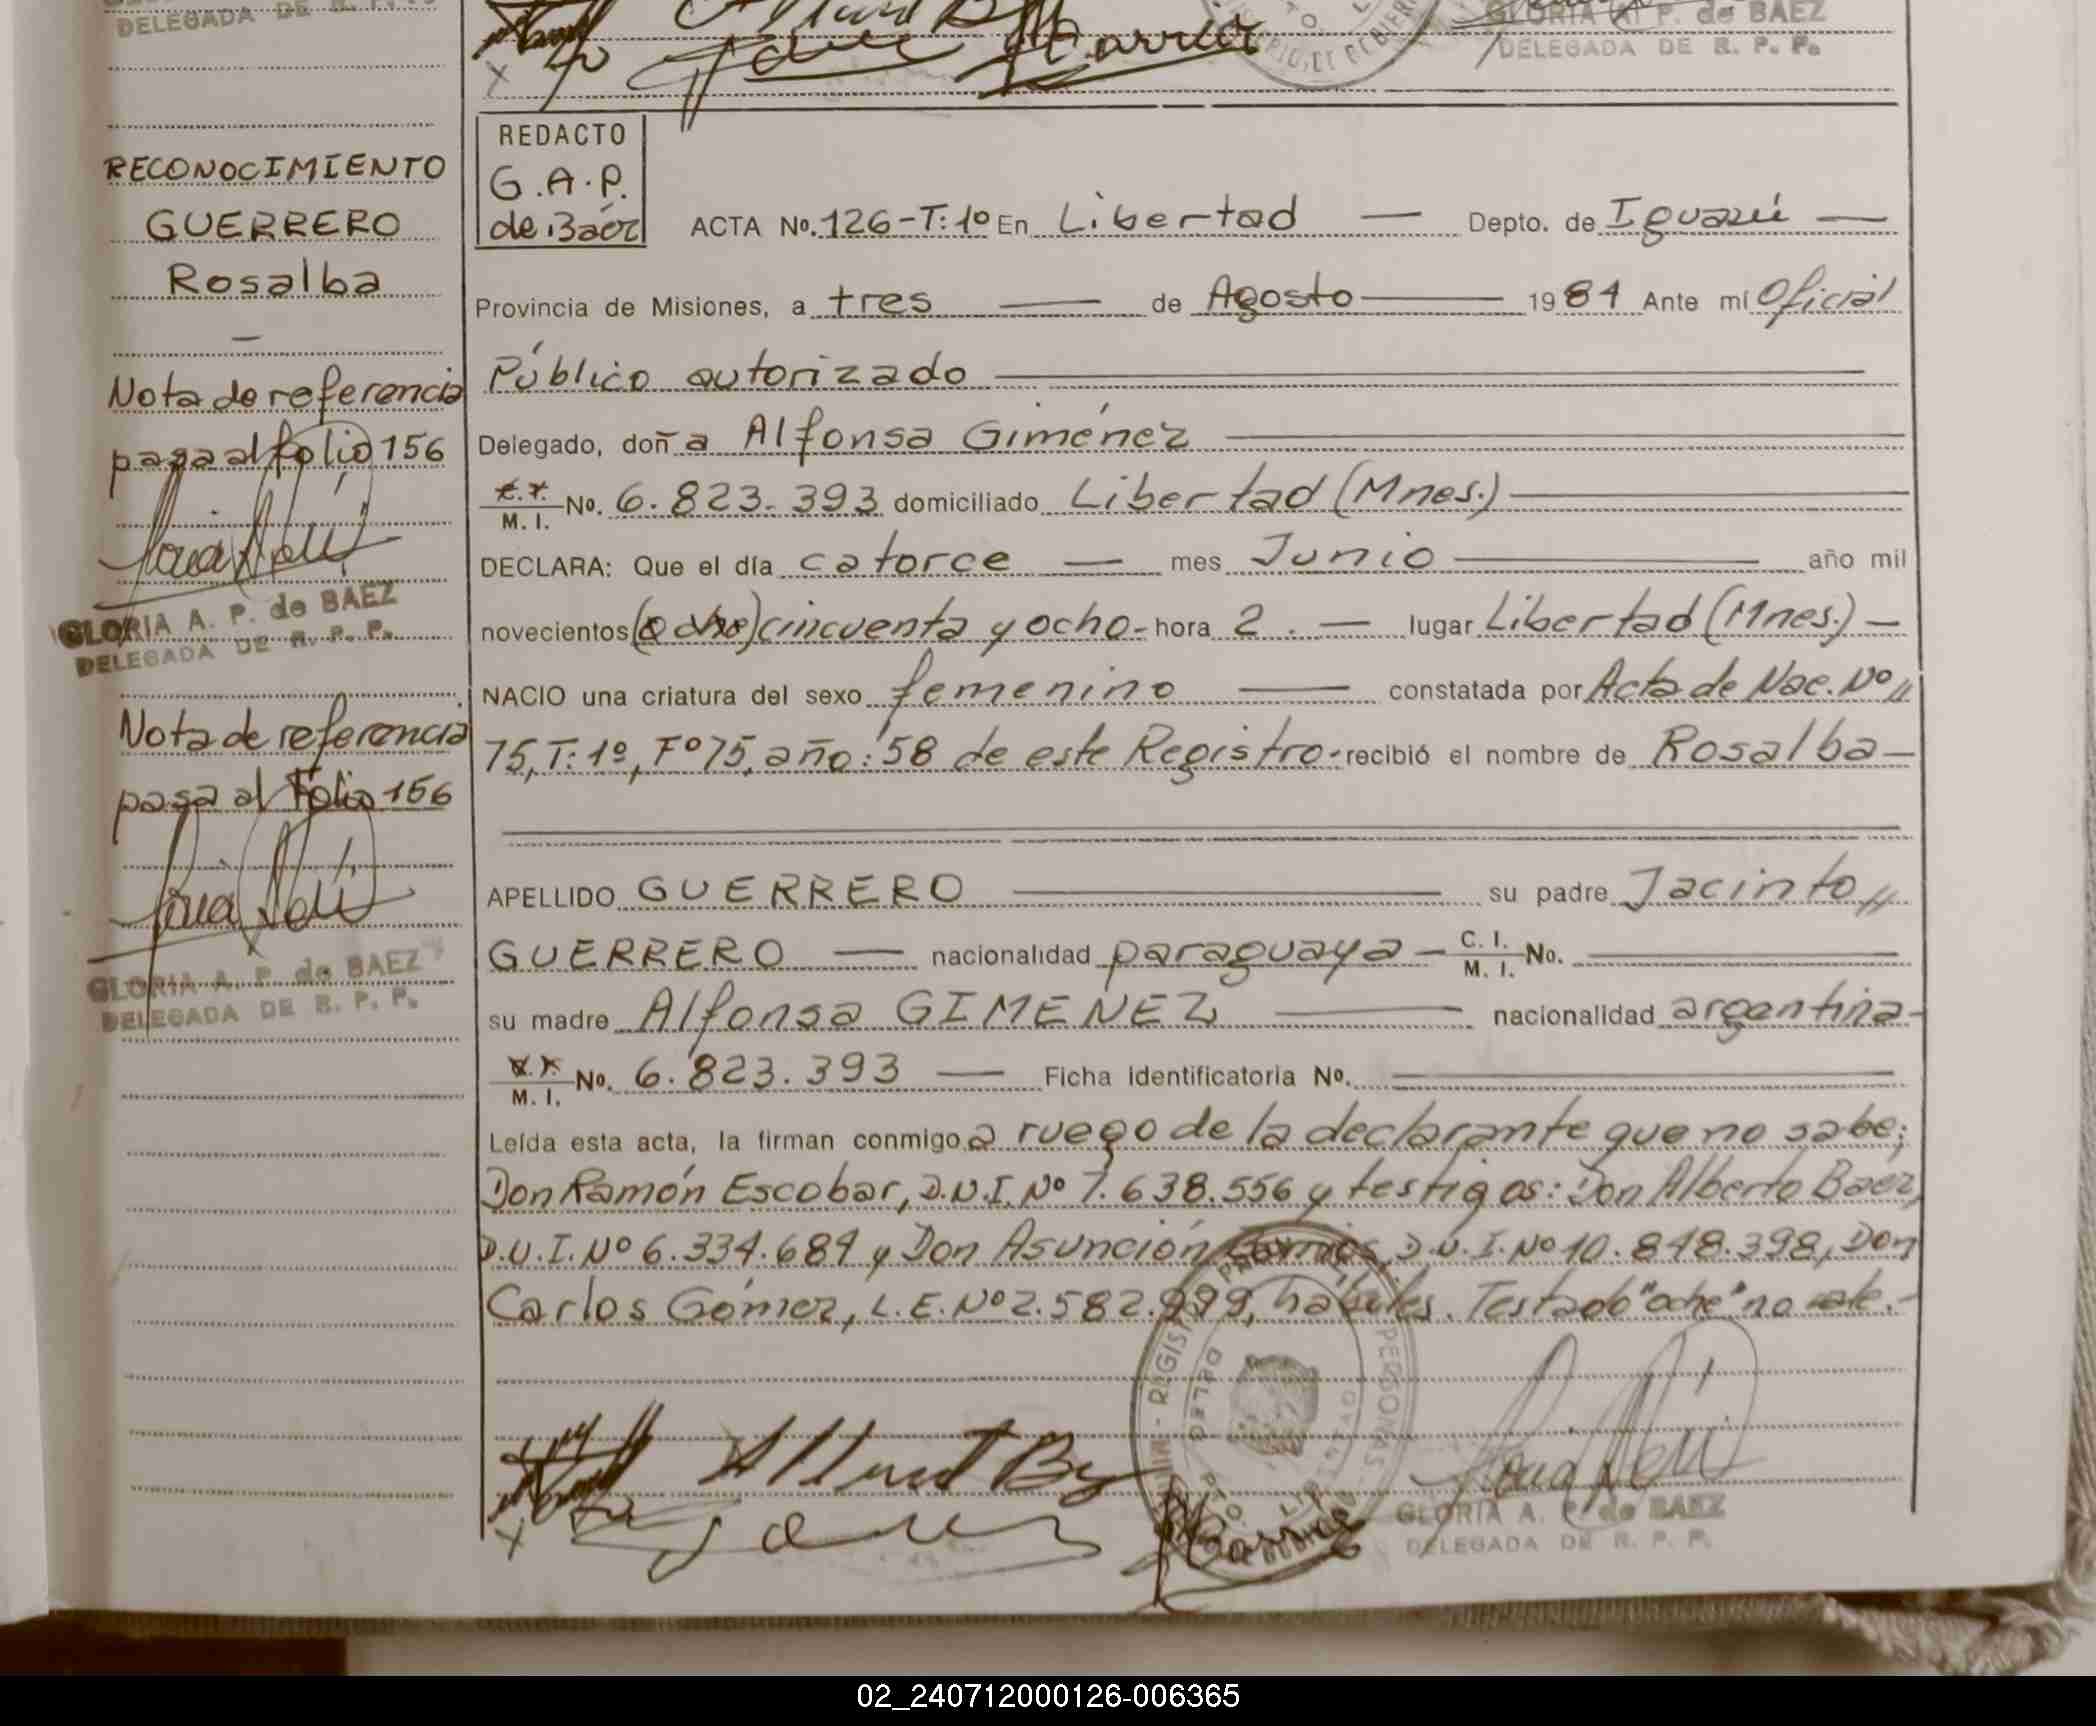 DELEGADA DE R. P. P.
GLORIA A. P. de BAEZ
DELEGADA DE R. P. P.
RECONOCIMIENTO
GUERRERO
Rosalba
Nota de referencia
pasa al folio 156
GLORIA A. P. de BAEZ
DELEGADA DE R. P. P.
Nota de referencia
pasa al Folio 156
GLORIA A. P. de BAEZ
DELEGADA DE R. P. P.
REDACTO
G.A.P.
de Báez
ACTA No. 126-T:1º En Libertad — Depto. de Iguazú —
Provincia de Misiones, a tres — de Agosto — 1984 Ante mí Oficial
Público autorizado
Delegado, doña Alfonsa Giménez
M. I. No. 6.823.393 domiciliado Libertad (Mnes.)
DECLARA: Que el día catorce — mes Junio — año mil
novecientos (ocho) cincuenta y ocho - hora 2. — lugar Libertad (Mnes.) —
NACIO una criatura del sexo femenino — constatada por Acta de Nac. Nº //
75, T: 1º, Fº 75, año: 58 de este Registro - recibió el nombre de Rosalba —
APELLIDO GUERRERO — su padre Jacinto //
GUERRERO — nacionalidad paraguaya — C. I. M. I. No. —
su madre Alfonsa GIMENEZ — nacionalidad argentina -
M. I. No. 6.823.393 — Ficha identificatoria No. —
Leída esta acta, la firman conmigo a ruego de la declarante que no sabe;
Don Ramón Escobar, D.N.I. Nº 7.638.556 y testigos: Don Alberto Baez,
D.N.I. Nº 6.334.684 y Don Asunción D.N.I. Nº 10.848.398, Don
Carlos Gómez, L.E. Nº 2.582.999, hábiles. Testado "ocho" no vale.-
GLORIA A. P. de BAEZ
DELEGADA DE R. P. P.
02_240712000126-006365